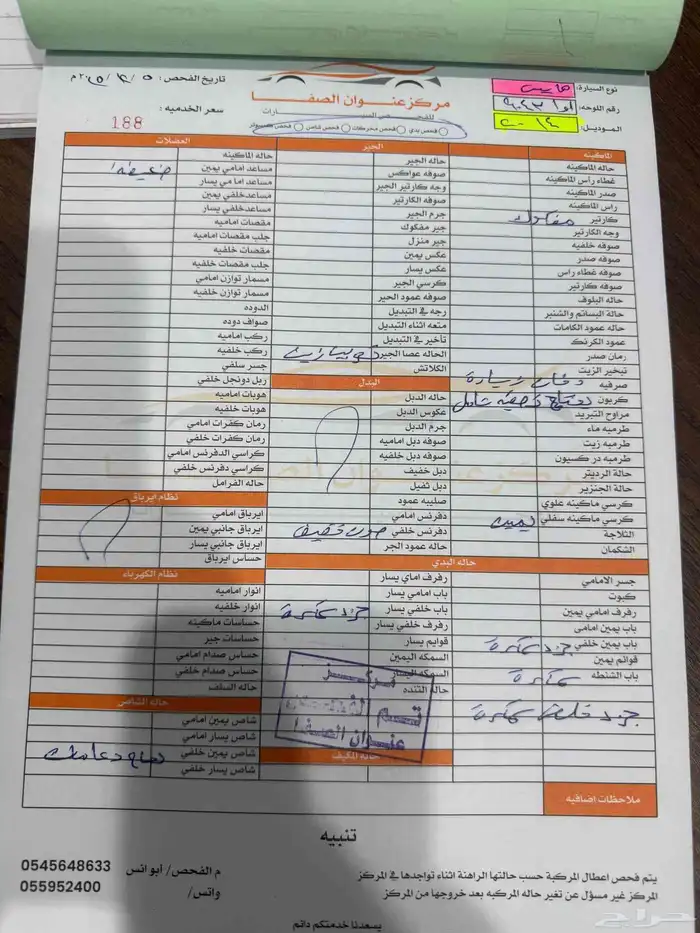 نوع السيارة:
رقم اللوحه:
الموديل: ٢٠١٤
مركز عنوان الصفا
للفحص الفني للسيارات
فحص بدي فحص محركات فحص شاص فحص كمبيوتر
تاريخ الفحص: ٢٠٢٥/٤/٥م
سعر الخدميه:
188
الماكينه
حاله الماكينه
غطاء رأس الماكينه
صدر الماكينه
راس الماكينه
كارتير مفكوك
وجه الكارتير
صوفه خلفيه
صوفه صدر
صوفه غطاء راس
صوفه كارتير
حاله البلوف
حالة البساتم والشنبر
حاله عمود الكامات
عمود الكرنك
رمان صدر
تبخير الزيت
صرفيه دخان زيادة
كربون يحتاج تصفية شامل
مراوح التبريد
طرمبه ماء
طرمبه زيت
طرمبه دركسيون
حالة الرديتر
حالة الجنزير
كرسي ماكينه علوي
كرسي ماكينه سفلي يمين
الثلاجة
الشكمان
الجير
حاله الجير
صوفه عواكس
وجه كارتير الجير
صوفه الكارتير
جرم الجير
جير مفكوك
جير منزل
عكس يمين
عكس يسار
كرسي الجير
صوفه عمود الجير
رجه في التبديل
متعه اثناء التبديل
تأخير في التبديل
الحاله عصا الجير
الكلاتش
الدبل
حاله الدبل
عكوس الدبل
جرم الدبل
صوفه دبل اماميه
صوفه دبل خلفيه
دبل خفيف
دبل ثقيل
صليبه عمود
دفرنس امامي
دفرنس خلفي صوت خفيف
حاله عمود الجر
العضلات
حاله الماكينه
مساعد امامي يمين ضعيفه
مساعد امامي يسار
مساعد خلفي يمين
مساعد خلفي يسار
مقصات اماميه
جلب مقصات اماميه
مقصات خلفيه
جلب مقصات خلفيه
مسمار توازن امامي
مسمار توازن خلفيه
الدوده
صواف دوده
ركب اماميه
ركب خلفيه
جسر سلفي
ربل دونجل خلفي
هوبات اماميه
هوبات خلفيه
رمان كفرات امامي
رمان كفرات خلفي
كراسي الدفرنس امامي
كراسي دفرنس خلفي
حاله الفرامل
نظام ايرباق
ايرباق امامي
ايرباق جانبي يمين
ايرباق جانبي يسار
حساس ايرباق
حاله البدي
جسر الامامي
كبوت
رفرف امامي يمين
باب يمين امامي
باب يمين خلفي
قوائم يمين
باب الشنطه
رفرف اماي يسار
باب امامي يسار
باب خلفي يسار
رفرف خلفي يسار
قوايم يسار
السمكه اليمين
السمكه اليسار
حاله التنده
حاله المكيف
نظام الكهرباء
انوار اماميه
انوار خلفيه
حساسات ماكينه
حساسات جير
حساس صدام امامي
حساس صدام خلفي
حاله السلف
حاله الشاص
شاص يمين امامي
شاص يسار امامي
شاص يمين خلفي
شاص يسار خلفي
مركز
قسم الفحص
عنوان الصفا
ملاحظات اضافيه
تنبيه
يتم فحص اعطال المركبة حسب حالتها الراهنة اثناء تواجدها في المركز
المركز غير مسؤل عن تغير حاله المركبه بعد خروجها من المركز
م الفحص/ أبو انس 0545648633
واتس/ 055952400
يسعدنا خدمتكم دائم
حراج